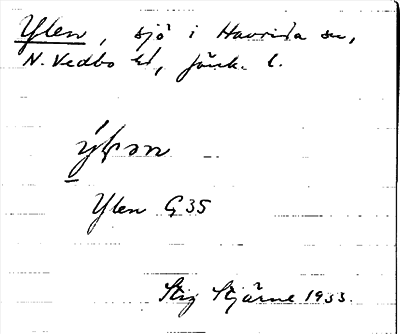 Ylen, sjö i Haurida sn,
N. Vedbo hd, Jönk. l.
Ylen G35
Stig Stjärne 1933.